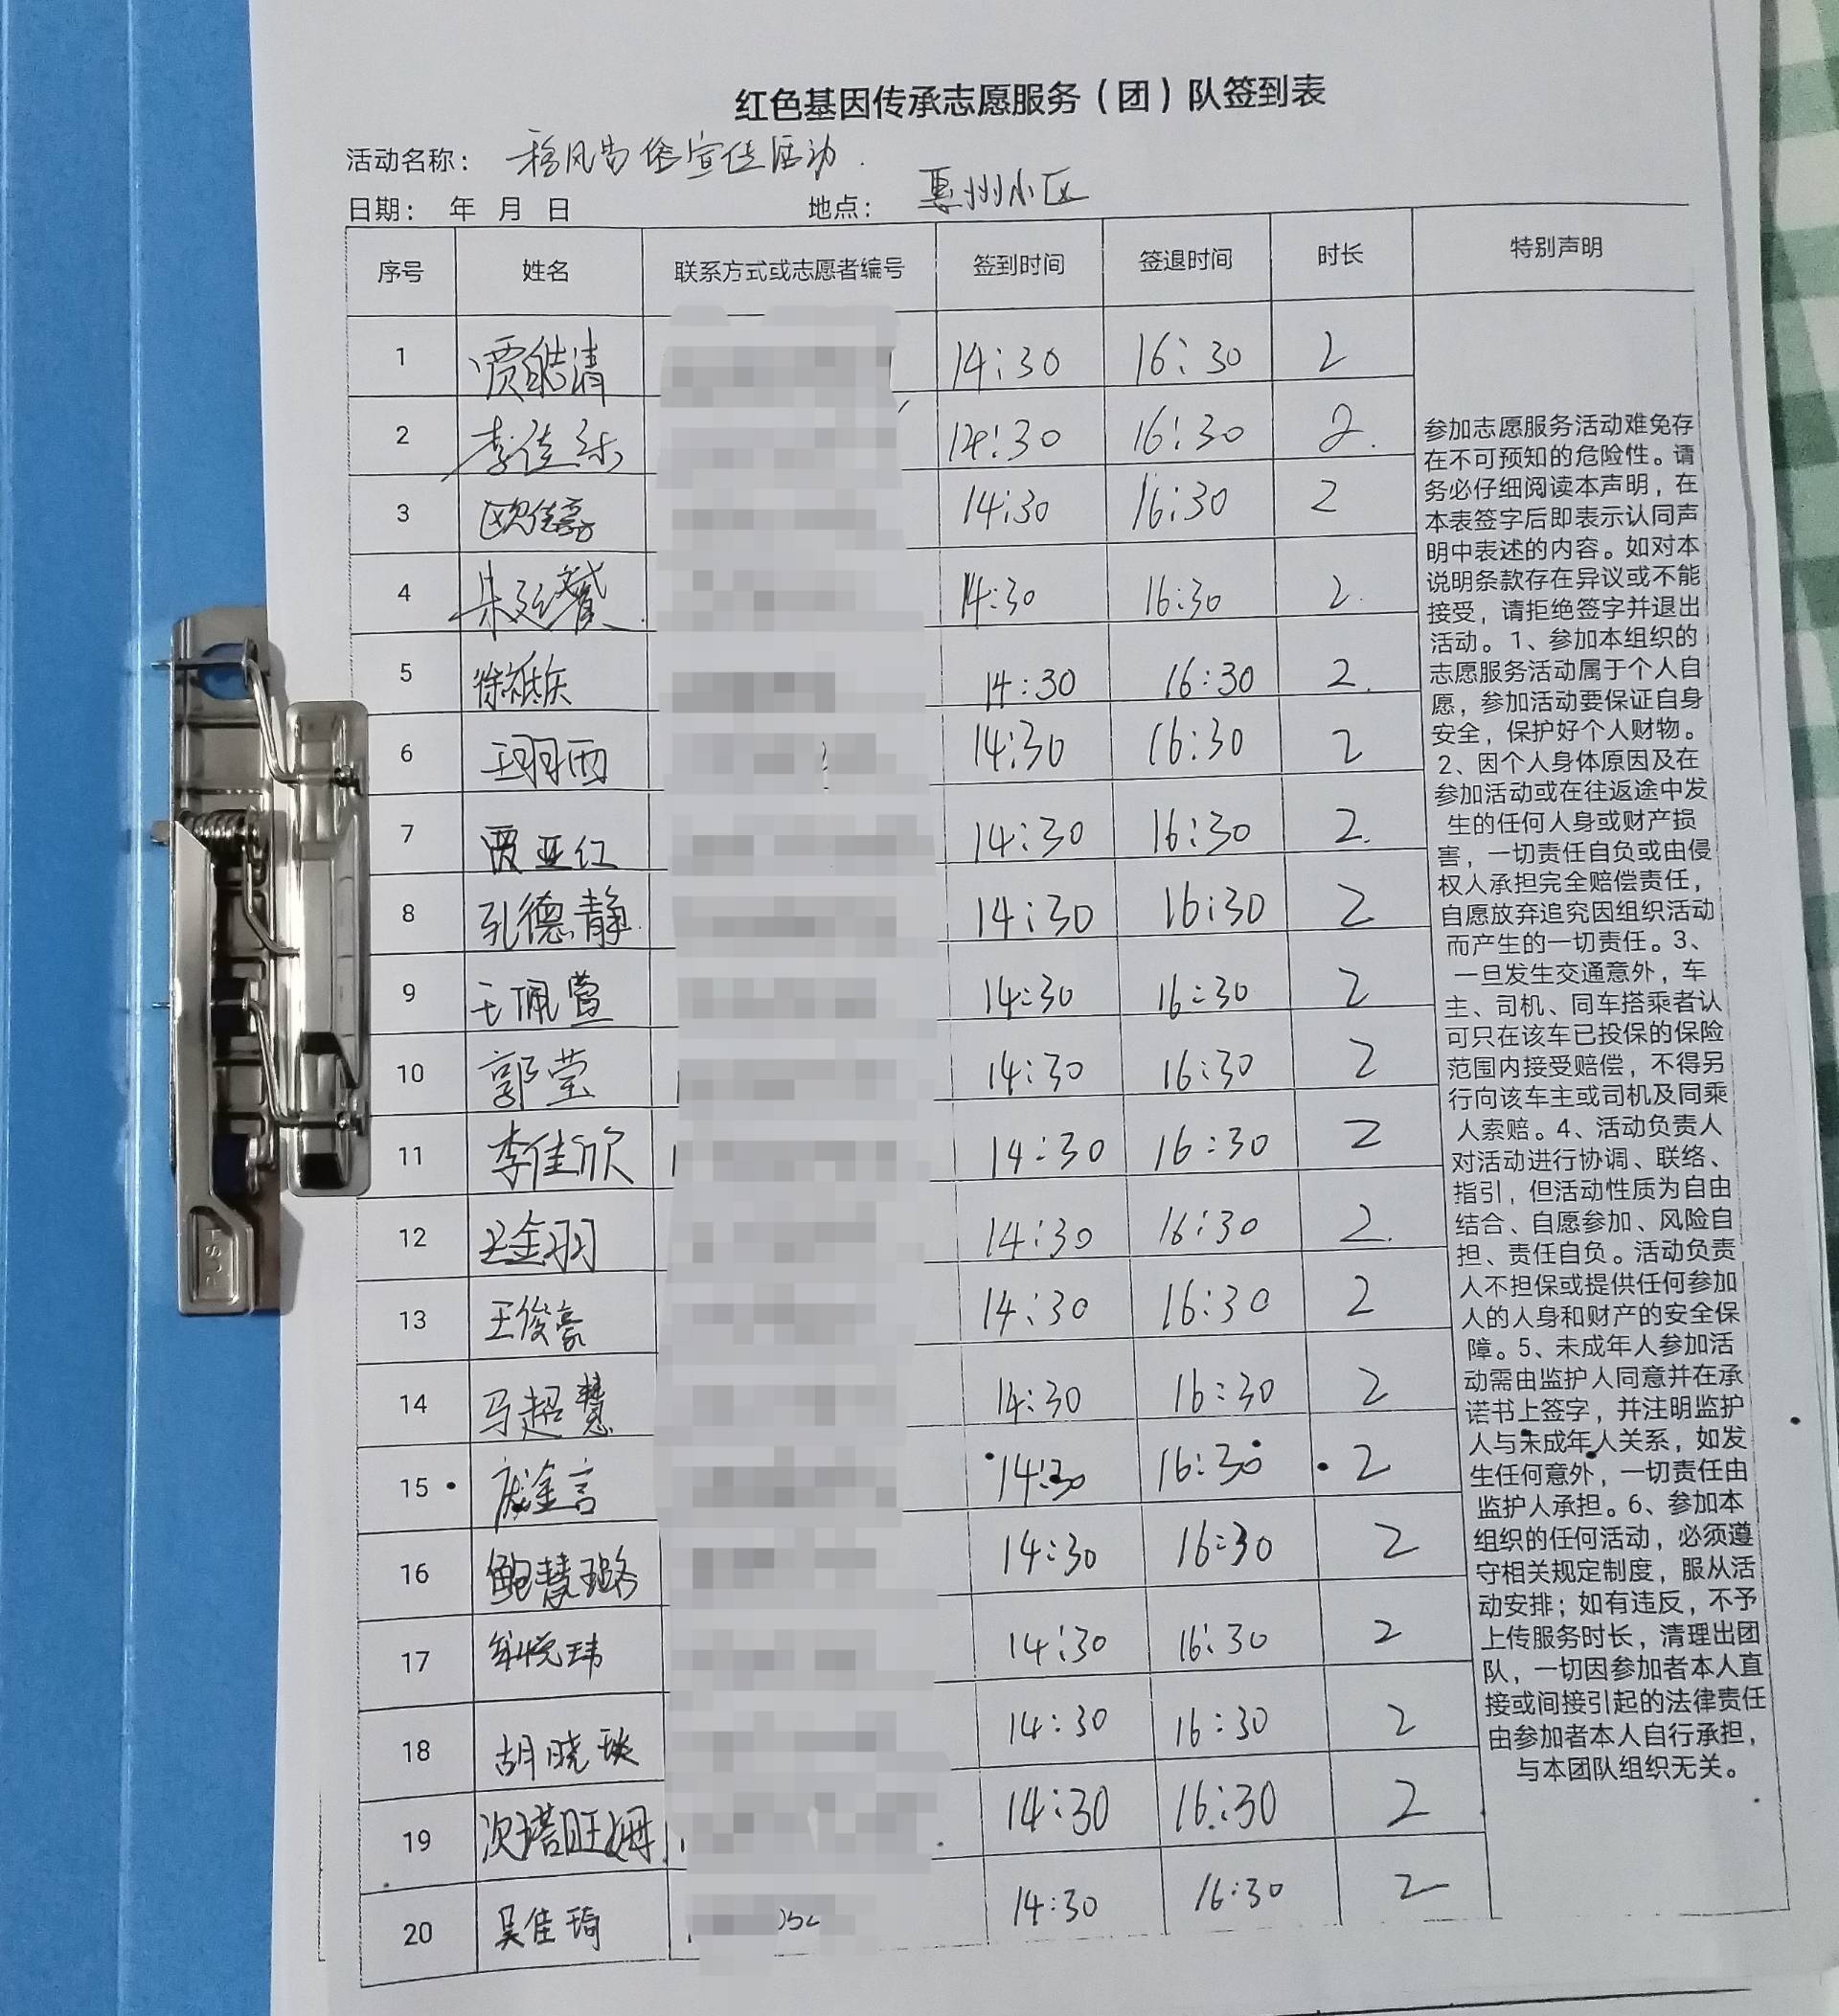 红色基因传承志愿服务（团）队签到表
活动名称： 移风易俗宣传活动
日期： 年 月 日 地点： 惠州小区
序号 姓名 联系方式或志愿者编号 签到时间 签退时间 时长 特别声明
1 贾皓清 14:30 16:30 2
2 李佳乐 14:30 16:30 2
3 欧佳豪 14:30 16:30 2
4 朱廷赟 14:30 16:30 2
5 徐 14:30 16:30 2
6 王羽西 14:30 16:30 2
7 贾亚红 14:30 16:30 2
8 孔德静 14:30 16:30 2
9 王佩萱 14:30 16:30 2
10 郭莹 14:30 16:30 2
11 李佳欣 14:30 16:30 2
12 王金羽 14:30 16:30 2
13 王俊豪 14:30 16:30 2
14 马超慧 14:30 16:30 2
15 庞金言 14:30 16:30 2
16 鲍慧璐 14:30 16:30 2
17 悦玮 14:30 16:30 2
18 胡晓琰 14:30 16:30 2
19 次塔旺姆 14:30 16:30 2
20 吴佳琦 052 14:30 16:30 2
参加志愿服务活动难免存
在不可预知的危险性。请
务必仔细阅读本声明，在
本表签字后即表示认同声
明中表述的内容。如对本
说明条款存在异议或不能
接受，请拒绝签字并退出
活动。1、参加本组织的
志愿服务活动属于个人自
愿，参加活动要保证自身
安全，保护好个人财物。
2、因个人身体原因及在
参加活动或在往返途中发
生的任何人身或财产损
害，一切责任自负或由侵
权人承担完全赔偿责任，
自愿放弃追究因组织活动
而产生的一切责任。3、
一旦发生交通意外，车
主、司机、同车搭乘者认
可只在该车已投保的保险
范围内接受赔偿，不得另
行向该车主或司机及同乘
人索赔。4、活动负责人
对活动进行协调、联络、
指引，但活动性质为自由
结合、自愿参加、风险自
担、责任自负。活动负责
人不担保或提供任何参加
人的人身和财产的安全保
障。5、未成年人参加活
动需由监护人同意并在承
诺书上签字，并注明监护
人与未成年人关系，如发
生任何意外，一切责任由
监护人承担。6、参加本
组织的任何活动，必须遵
守相关规定制度，服从活
动安排；如有违反，不予
上传服务时长，清理出团
队，一切因参加者本人直
接或间接引起的法律责任
由参加者本人自行承担，
与本团队组织无关。
PUSH